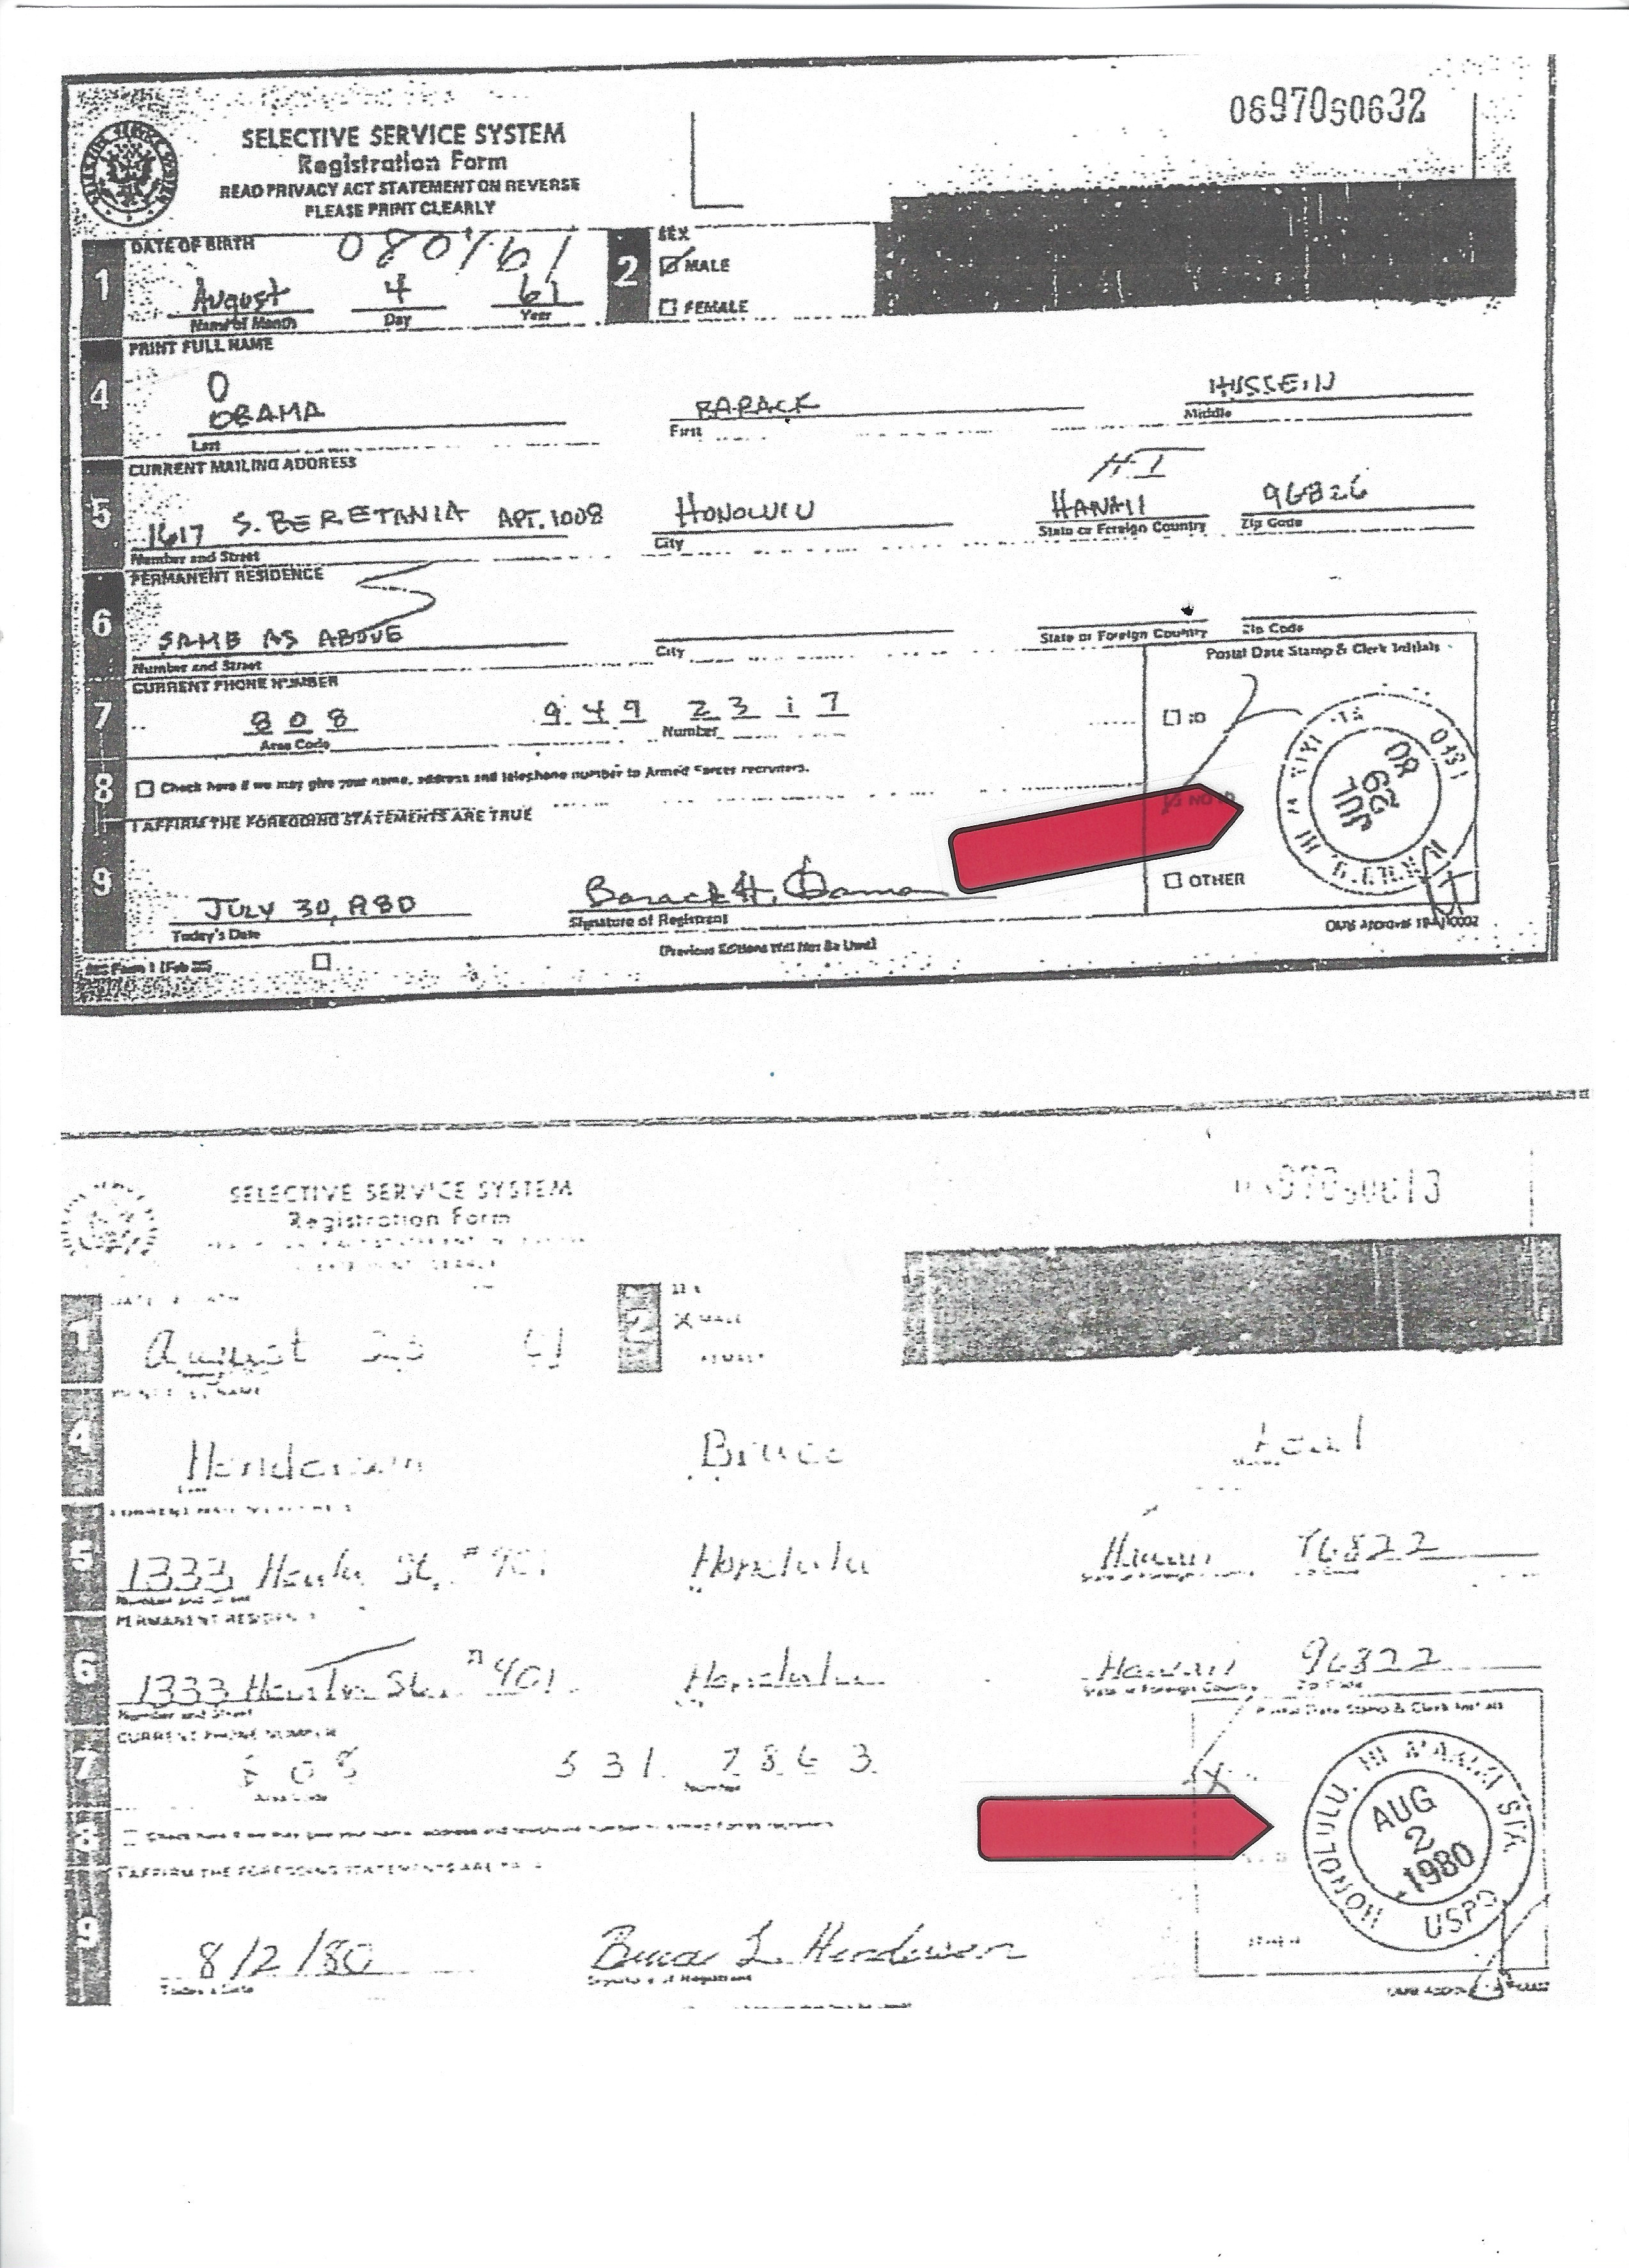 0697050632
SELECTIVE SERVICE SYSTEM
Registration Form
READ PRIVACY ACT STATEMENT ON REVERSE
PLEASE PRINT CLEARLY
1 DATE OF BIRTH 2 SEX
MALE
August 4 61
Name of Month Day Year
FEMALE
PRINT FULL NAME
4 O
OBAMA BARACK HUSSEIN
Last First Middle
CURRENT MAILING ADDRESS
HI
5 1617 S. BERETANIA APT. 1008 HONOLULU HAWAII 96826
Number and Street City State or Foreign Country Zip Code
PERMANENT RESIDENCE
6 SAME AS ABOVE
Number and Street City State or Foreign Country Zip Code
Postal Date Stamp & Clerk Initials
CURRENT PHONE NUMBER
7 808 949 2317
Area Code Number
ID
8 Check here if we may give your name, address and telephone number to Armed Forces recruiters.
NO ID
JUL 29 80
USPO
I AFFIRM THE FOREGOING STATEMENTS ARE TRUE
9 OTHER
JULY 30, 1980 Barack H. Obama
Today's Date Signature of Registrant
(Previous Editions Will Not Be Used)
SSS Form 1 (Feb 80)
SELECTIVE SERVICE SYSTEM
Registration Form
1 August 61 2 MALE
4 Henderson Bruce
5 1333 St. Honolulu Hawaii 96822
PERMANENT RESIDENCE
6 1333 St. #401 Honolulu Hawaii 96822
Number and Street State or Foreign Country Zip Code
Postal Date Stamp & Clerk Initials
CURRENT PHONE NUMBER
7 808 531 2863
Area Code Number
HONOLULU, HI WAIKIKI STA
AUG
2
1980
USPO
8 Check here if we may give your name, address and telephone number to Armed Forces recruiters
I AFFIRM THE FOREGOING STATEMENTS ARE TRUE
9 8/2/80 Bruce L Henderson
Today's Date Signature of Registrant